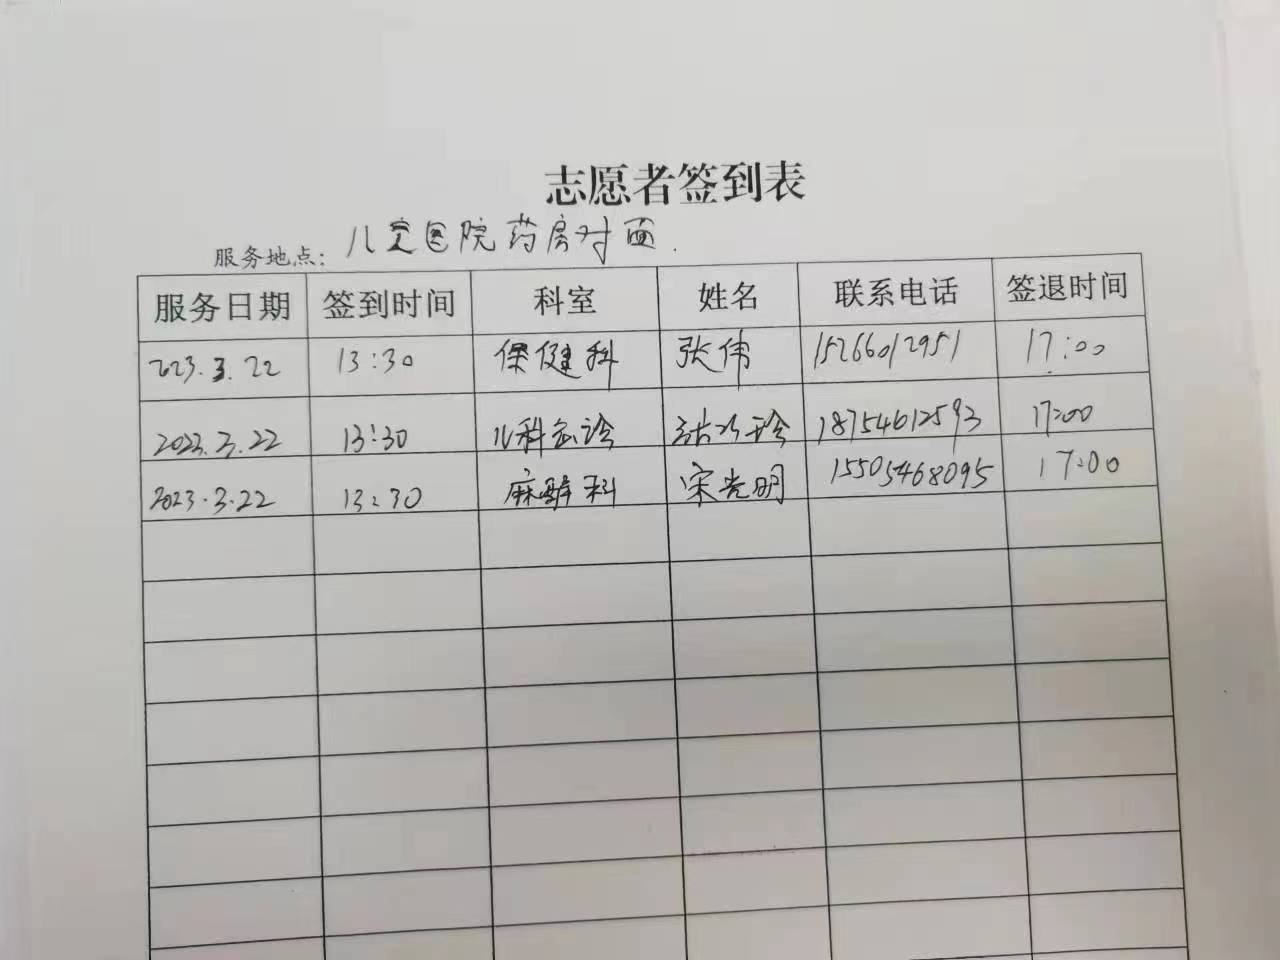 志愿者签到表
服务地点: 儿童医院药房对面.
服务日期 签到时间 科室 姓名 联系电话 签退时间
2023.3.22 13:30 保健科 张伟 15266012951 17:00
2023.3.22 13:30 儿科急诊 18754612593 17:00
2023.3.22 13:30 麻醉科 宋光明 15505468095 17:00